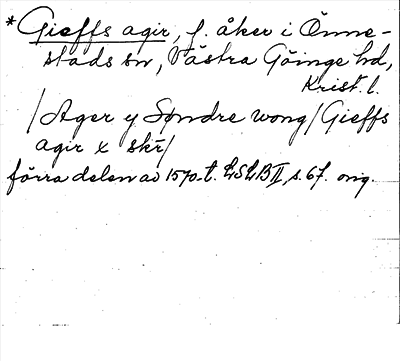 *Gieffs agir, f. åker i Önne-
stads sn, Västra Göinge hd,
Krist. l.
/Ager y Søndre wong/Gieffs
agir x skr/
förra delen av 1570-t. LSLB II, s. 67. orig.